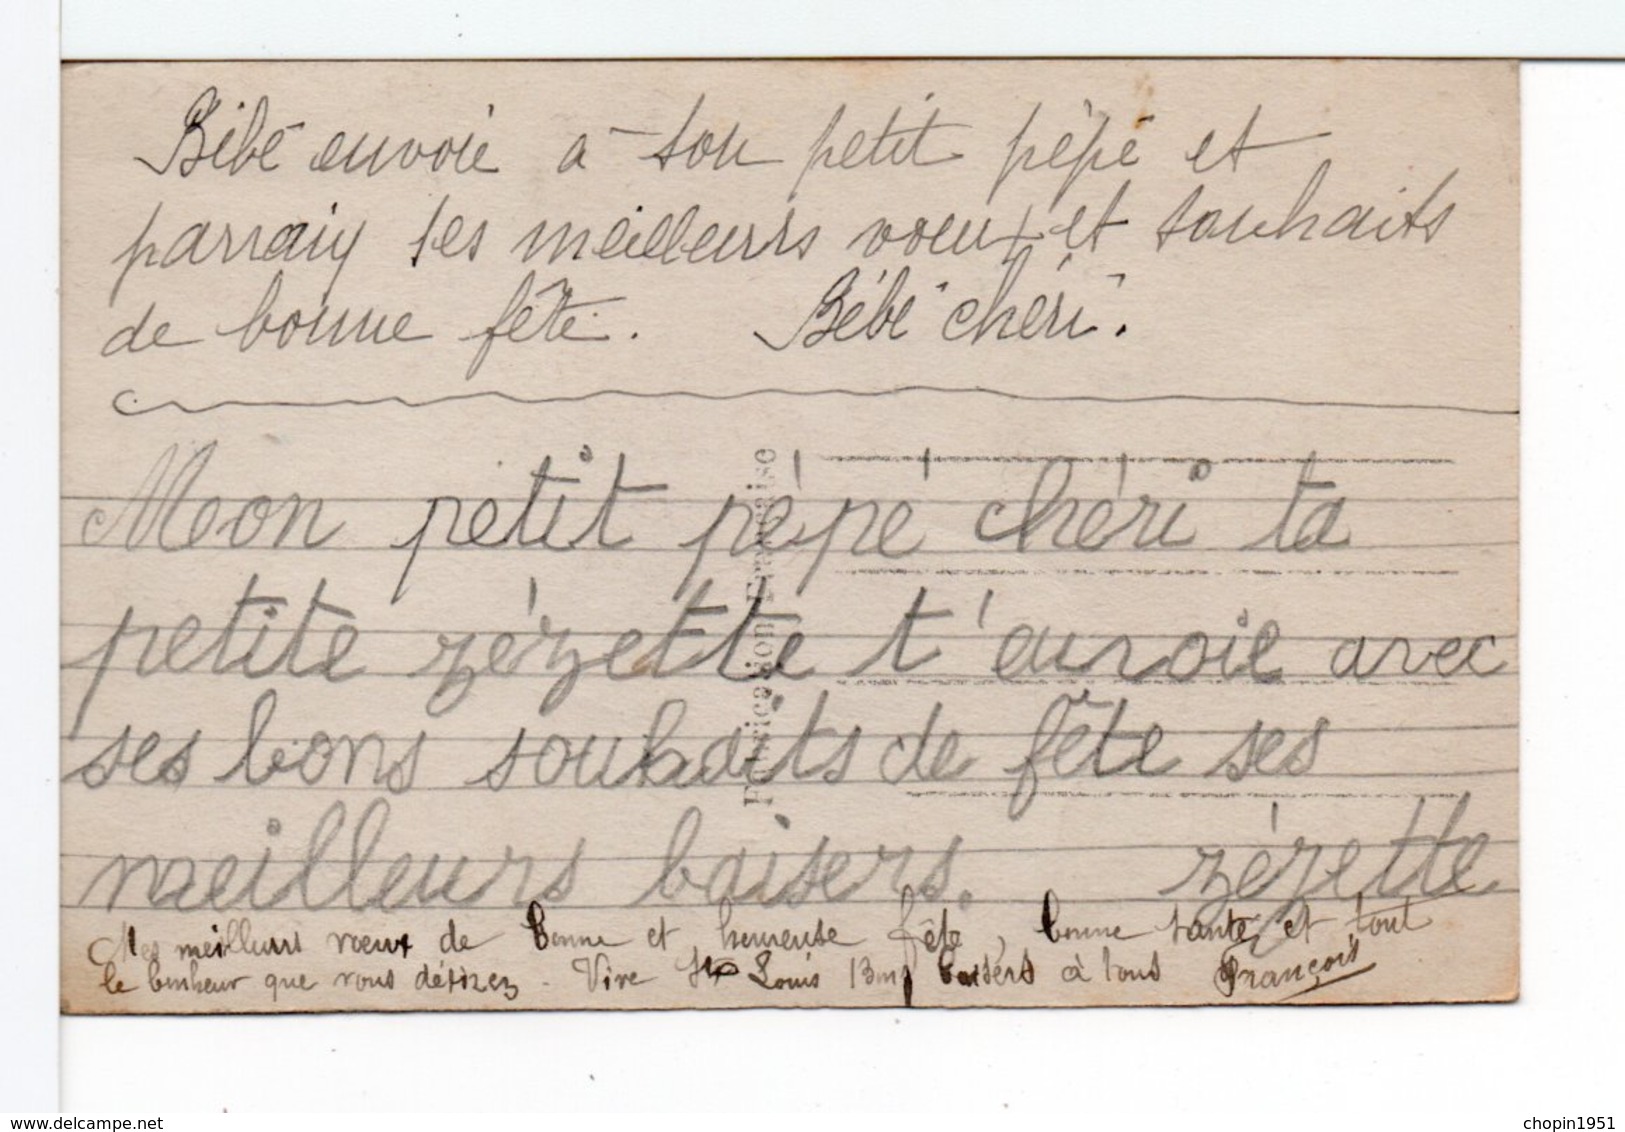 Bébé envoie à son petit pépé et
parrain ses meilleurs voeux et souhaits
de bonne fête. Bébé chéri.
Mon petit pépé chéri ta
petite zézette t'envoie avec
ses bons souhaits de fête ses
meilleurs baisers. zézette
Mes meilleurs voeux de Bonne et heureuse fête, bonne santé et tout
le bonheur que vous désirez. Vive St Louis Bons baisers à tous François
Fabrication Française
delcampe.net
chopin1951